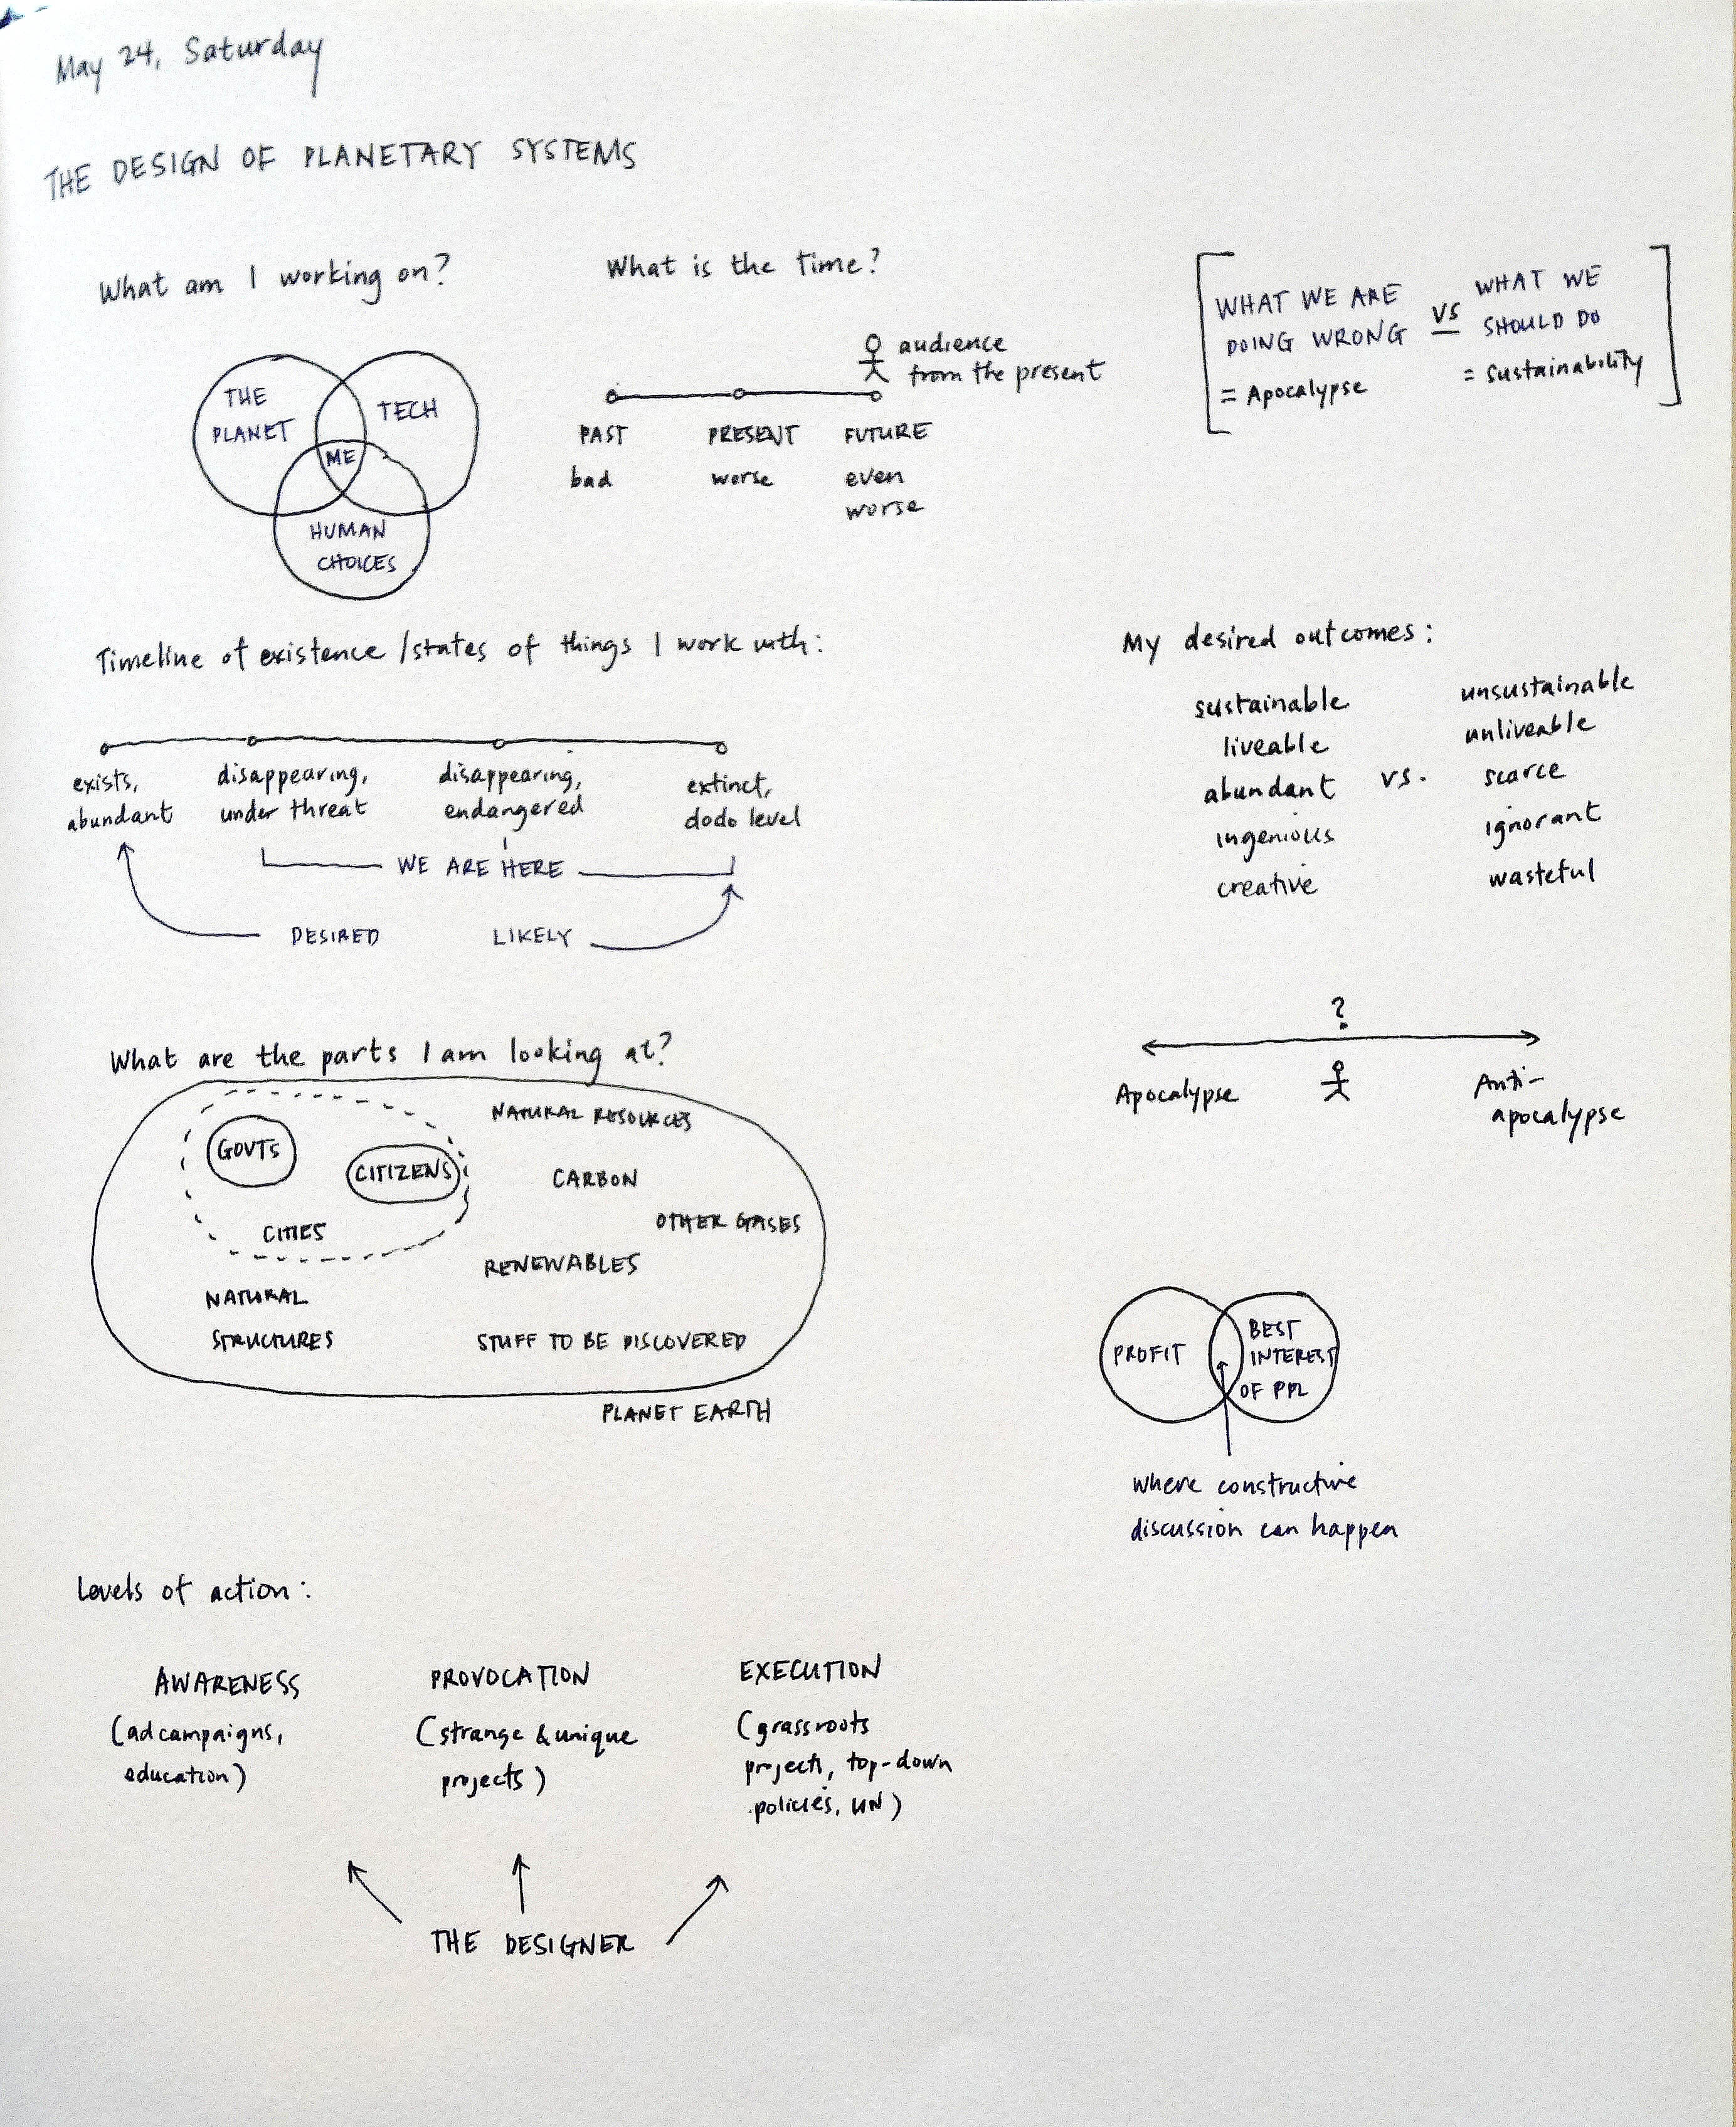 May 24, Saturday
THE DESIGN OF PLANETARY SYSTEMS
What am I working on?
THE
PLANET
TECH
ME
HUMAN
CHOICES
What is the time?
audience
from the present
PAST
PRESENT
FUTURE
bad
worse
even
worse
WHAT WE ARE
DOING WRONG
= Apocalypse
VS
WHAT WE
SHOULD DO
= Sustainability
Timeline of existence / states of things I work with:
exists,
abundant
disappearing,
under threat
disappearing,
endangered
extinct,
dodo level
WE ARE HERE
DESIRED
LIKELY
My desired outcomes:
sustainable
liveable
abundant
ingenious
creative
vs.
unsustainable
unliveable
scarce
ignorant
wasteful
What are the parts I am looking at?
GOVTS
CITIZENS
CITIES
NATURAL RESOURCES
CARBON
OTHER GASES
RENEWABLES
NATURAL
STRUCTURES
STUFF TO BE DISCOVERED
PLANET EARTH
?
Apocalypse
Anti-
apocalypse
PROFIT
BEST
INTEREST
OF PPL
where constructive
discussion can happen
Levels of action:
AWARENESS
(ad campaigns,
education)
PROVOCATION
(strange & unique
projects)
EXECUTION
(grassroots
projects, top-down
policies, UN)
THE DESIGNER